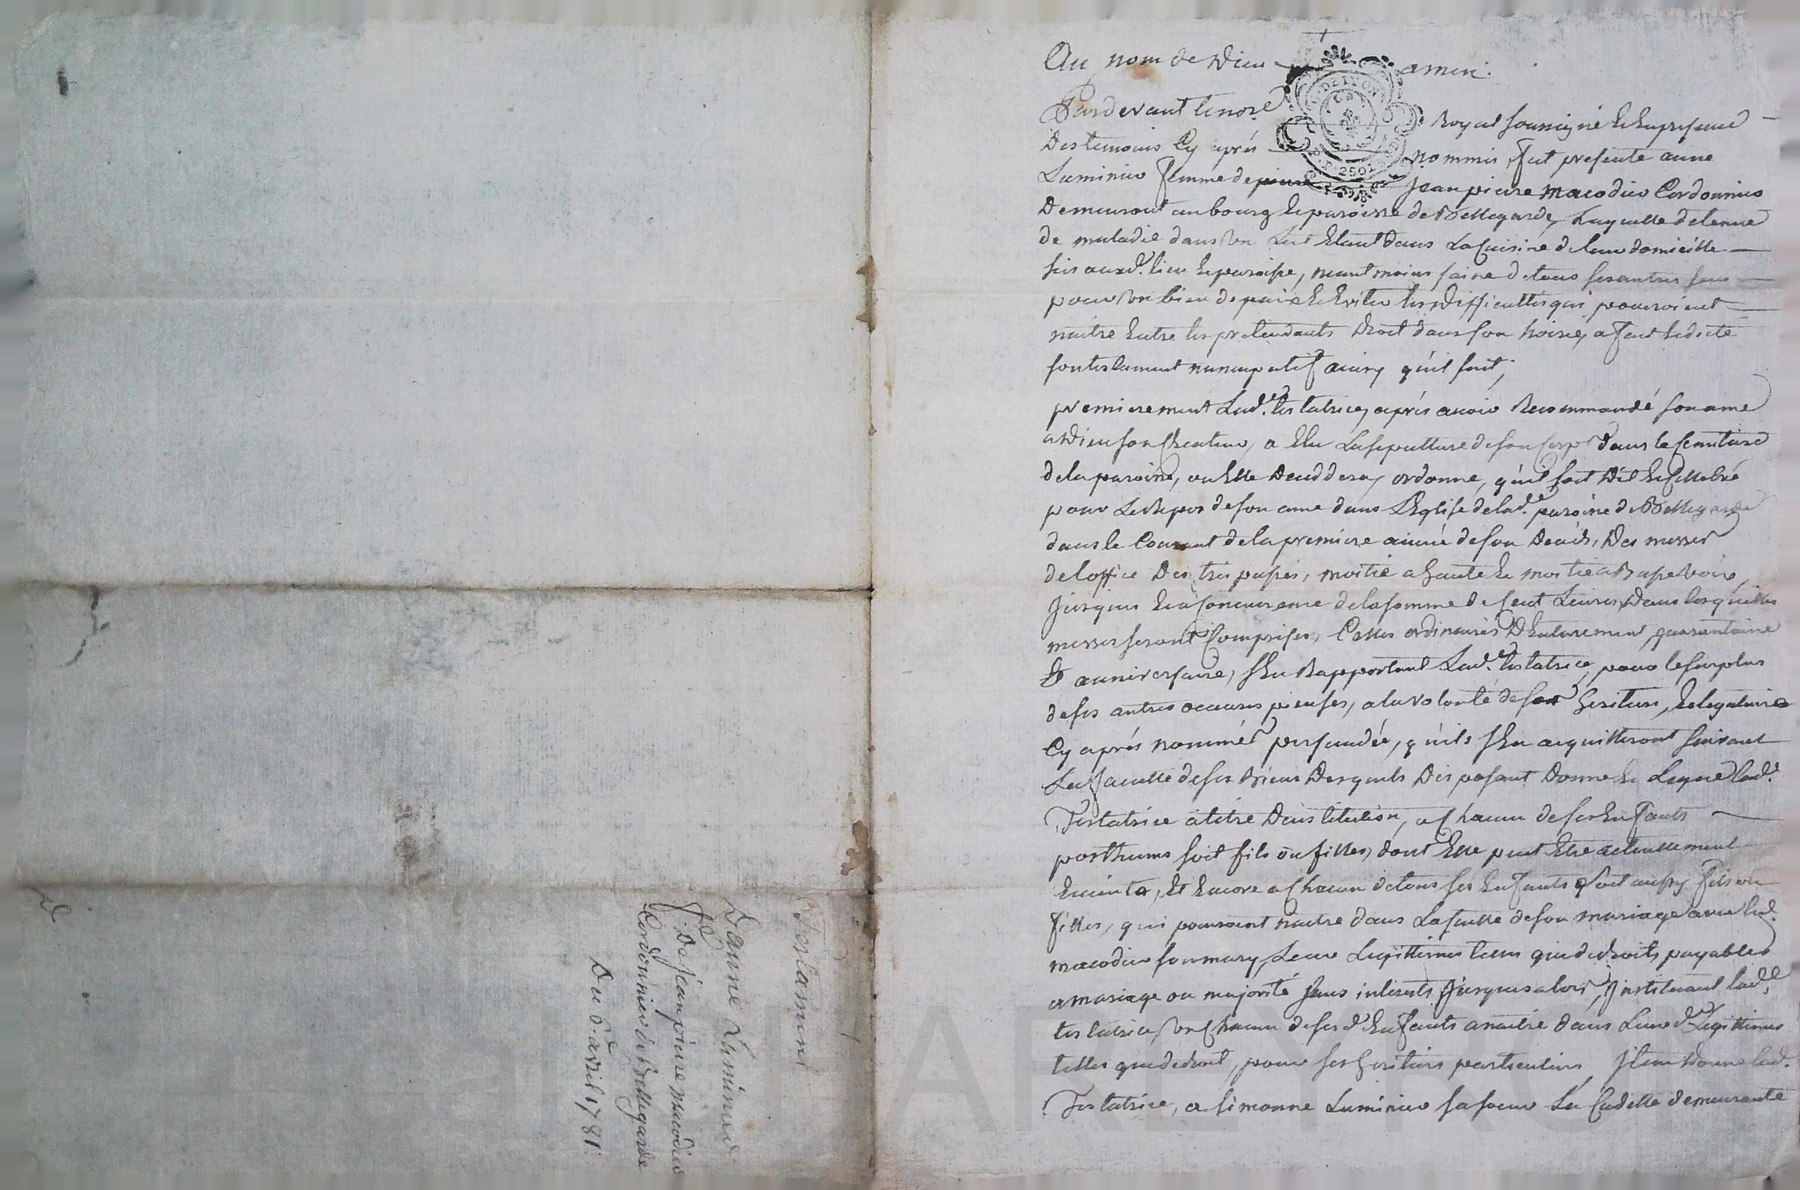 Au nom de Dieu amen.
Pardevant le no.re Royal soussigné & En presence
Des temoins Cy après nommés, fut presente anne
Luminier femme de pierre Jean pierre macodier Cordonnier
Demeurant au bourg & paroisse de Bellegarde, Laquelle detenue
de maladie dans un Lit Etant dans La Cuisine de leur domicille
sis aud. lieu & paroisse, neantmoins saine de tous ses autres sens
pour un bien de paix & Eviter les Difficultés qui pourroient
naitre Entre les pretendants Droit dans son hoirie, a fait & dicté
son testament nuncupatif ainsy qu'il suit,
premierement Lad.e testatrice, après avoir Recommandé son ame
a Dieu son Createur, a Elu La sepulture de son Corps dans le Cemitiere
de la paroisse, ou Elle Deceddera, ordonne, qu'il soit Dit & Cellebré
pour Le Repos de son ame dans L'Eglise de lad.e paroisse de Bellegarde
dans le Courant de la premiere année de son Deces, Des messes
de l'office Des trepassés, moitié a haute & moitié a Basse voix,
Jusques & a Concurrence de la somme de Cent Livres, Dans lesquelles
messes seront Comprises, Celles ordinaires D'Enterrement, quarantaine
& anniversaire, s'En Rapportant Lad.e testatrice, pour le surplus
de ses autres oeuvres pieuses, a la volonté de ses heritiers, & legataires
Cy après nommés persuadée, qu'ils s'En acquitteront suivant
La faculté de ses Biens Desquels Disposant Donne & Legue lad.e
Testatrice a titre D'institution, a Chacun de ses Enfants
posthumes soit fils ou filles, dont Elle peut Etre actuellement
Enceinte, Et Encore a Chacun de tous ses Enfants soit aussy fils ou
filles, qui pourront naitre dans La suitte de son mariage avec led.
macodier son mary, Leur Legittime telle que de droit, payable
a mariage ou majorité sans interests Jusques alors, Instituant lad.e
testatrice, un Chacun de ses d. Enfants a naitre dans Leurd. Legittime
telle que de droit, pour ses heritiers particuliers, Item Donne lad.
Testatrice, a simonne Luminier sa soeur La Cadette demeurante
Testament
D'anne Luminier
f.e De jean pierre macodier
Cordonnier de Bellegarde
Du 6. avril 1781.